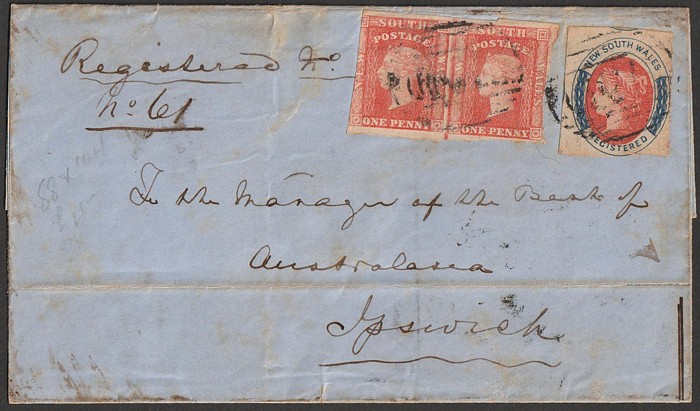 Registered
No. 61
SOUTH
POSTAGE
NEW
WALES
ONE PENNY
SOUTH
POSTAGE
NEW
WALES
ONE PENNY
NEW SOUTH WALES
REGISTERED
To the Manager of the Bank of
Australasia
Ipswich